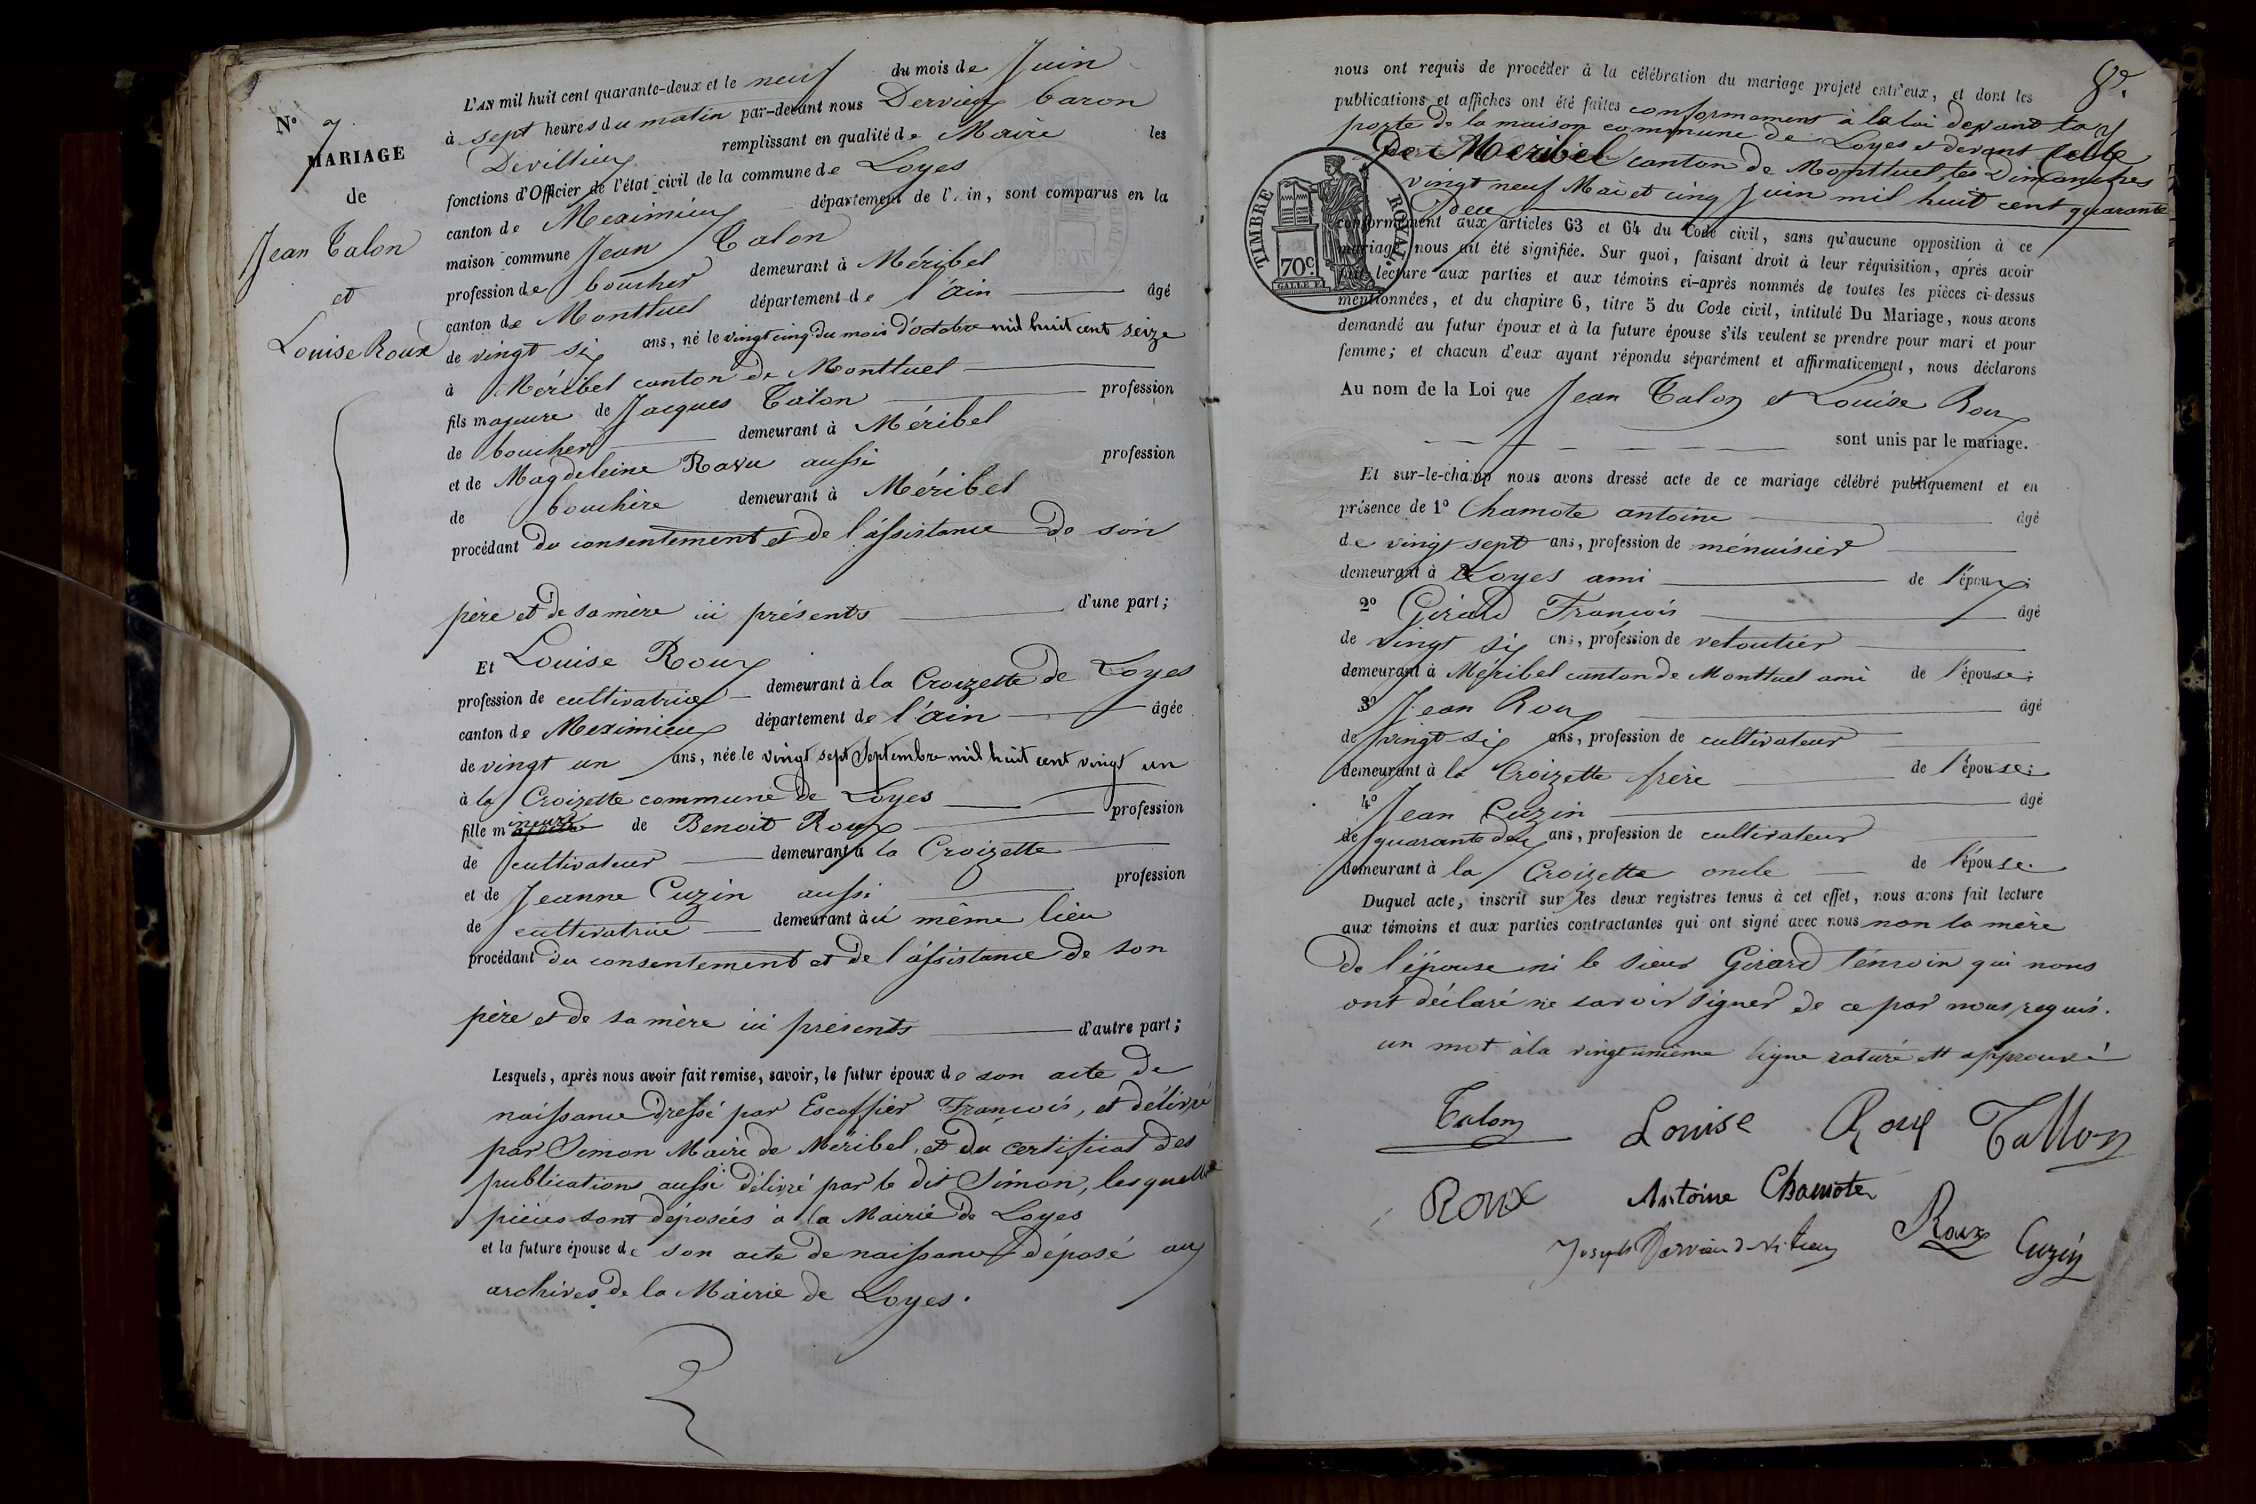 N° 7.
MARIAGE
de
Jean Talon
et
Louise Roux
L'AN mil huit cent quarante-deux et le neuf du mois de Juin
à sept heures du matin par-devant nous Dervieux baron
Devillieu remplissant en qualité de Maire les
fonctions d'Officier de l'état civil de la commune de Loyes
canton de Meximieux département de l'Ain, sont comparus en la
maison commune Jean Talon
profession de boucher demeurant à Méribel
canton de Montluel département de l'ain âgé
de vingt six ans, né le vingt cinq du mois d'octobre mil huit cent seize
à Méribel canton de Montluel
fils majeure de Jacques Talon profession
de boucher demeurant à Méribel
et de Magdeleine Ravu aussi profession
de bouchère demeurant à Méribel
procédant du consentement et de l'assistance de son
père et de sa mère ici présents d'une part;
Et Louise Roux
profession de cultivatrice demeurant à la Croizette de Loyes
canton de Meximieux département de l'ain âgée
de vingt un ans, née le vingt sept Septembre mil huit cent vingt un
à la Croizette commune de Loyes
fille mineure de Benoit Roux profession
de cultivateur demeurant à la Croizette
et de Jeanne Cuzin aussi profession
de cultivatrice demeurant à même lieu
procédant du consentement et de l'assistance de son
père et de sa mère ici présents d'autre part;
Lesquels, après nous avoir fait remise, savoir, le futur époux de son acte de
naissance dressé par Escoffier François, et délivré
par Simon Maire de Méribel, et du certificat des
publications aussi délivré par le dit Simon, lesquelles
pièces sont déposées à la Mairie de Loyes
et la future épouse de son acte de naissance déposé aux
archives de la Mairie de Loyes.
8e.
nous ont requis de procéder à la célébration du mariage projeté entr'eux, et dont les
publications et affiches ont été faites conformement à la loi devant la
porte de la maison commune de Loyes et devant celle
De Meribel canton de Montluel les Dimanches
vingt neuf Mai et cinq Juin mil huit cent quarante
deux
TIMBRE ROYAL.
70c.
conformément aux articles 63 et 64 du Code civil, sans qu'aucune opposition à ce
mariage nous ait été signifiée. Sur quoi, faisant droit à leur réquisition, après avoir
fait lecture aux parties et aux témoins ci-après nommés de toutes les pièces ci-dessus
mentionnées, et du chapitre 6, titre 5 du Code civil, intitulé Du Mariage, nous avons
demandé au futur époux et à la future épouse s'ils veulent se prendre pour mari et pour
femme; et chacun d'eux ayant répondu séparément et affirmativement, nous déclarons
Au nom de la Loi que Jean Talon et Louise Roux
sont unis par le mariage.
Et sur-le-champ nous avons dressé acte de ce mariage célébré publiquement et en
présence de 1° Chamote antoine âgé
de vingt sept ans, profession de ménuisier
demeurant à Loyes ami de l'époux.
2° Girard François âgé
de vingt six ans, profession de veloutier
demeurant à Méribel canton de Montluel ami de l'épouse;
3° Jean Roux âgé
de vingt-six ans, profession de cultivateur
demeurant à la Croizette frère de l'épouse;
4° Jean Cuzin âgé
de quarante deux ans, profession de cultivateur
demeurant à la Croizette oncle de l'épouse.
Duquel acte, inscrit sur les deux registres tenus à cet effet, nous avons fait lecture
aux témoins et aux parties contractantes qui ont signé avec nous non la mère
De l'épouse ni le sieur Girard témoin qui nous
ont déclaré ne savoir signer de ce par nous requis.
un mot à la vingt unième ligne raturé et approuvé
Talon Louise Roux Tallon
Roux Antoine Chamote Roux Cuzin
Joseph Dervieu